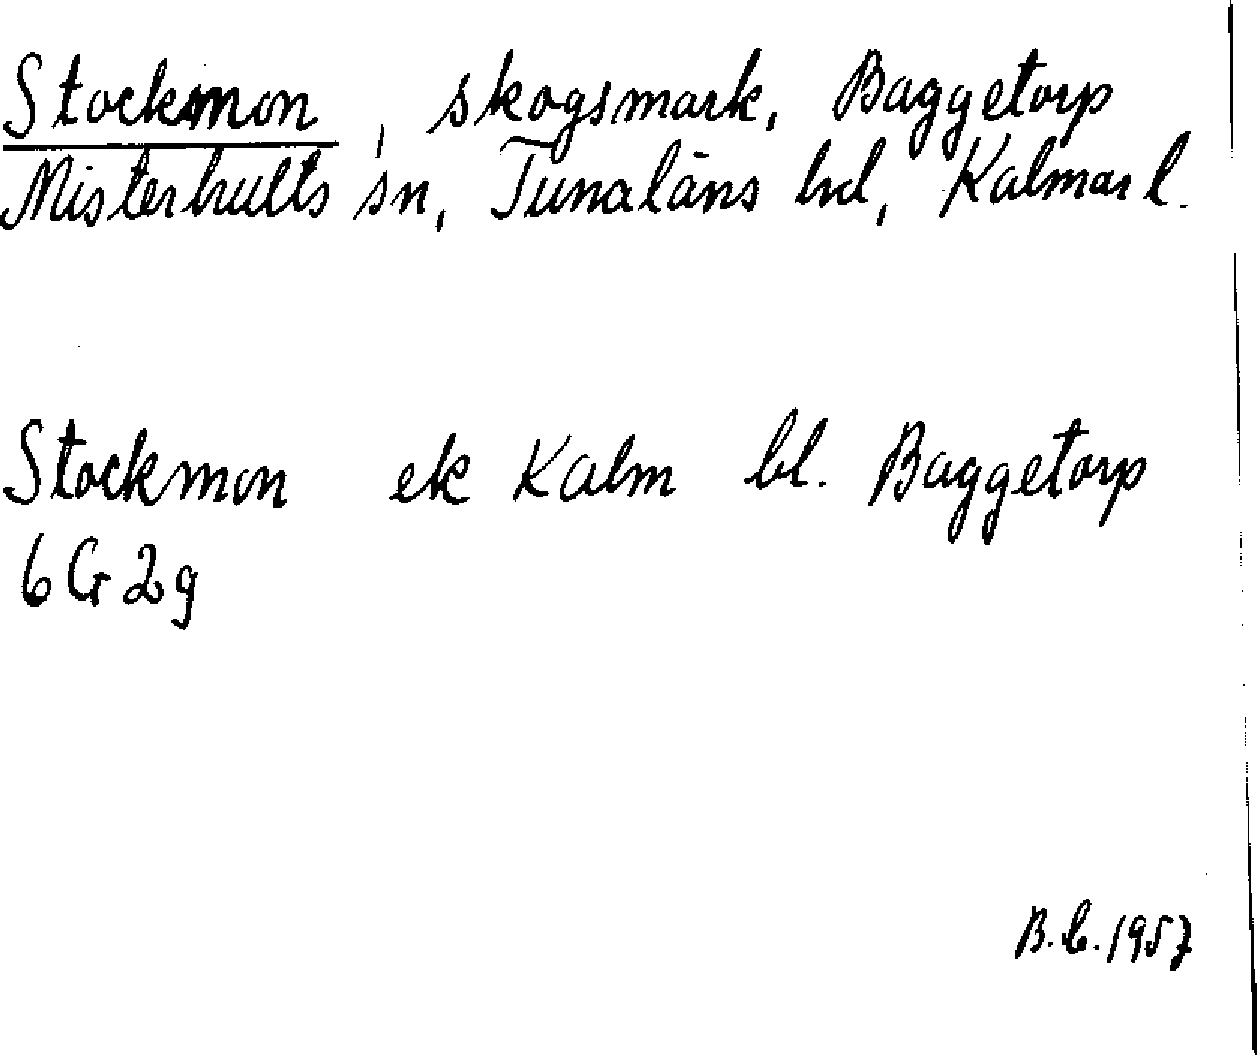 Stockmon, skogsmark, Baggetorp
Misterhults sn, Tunaläns hd, Kalmar l.
Stockmon ek Kalm bl. Baggetorp
6 G 2g
B.C. 1957